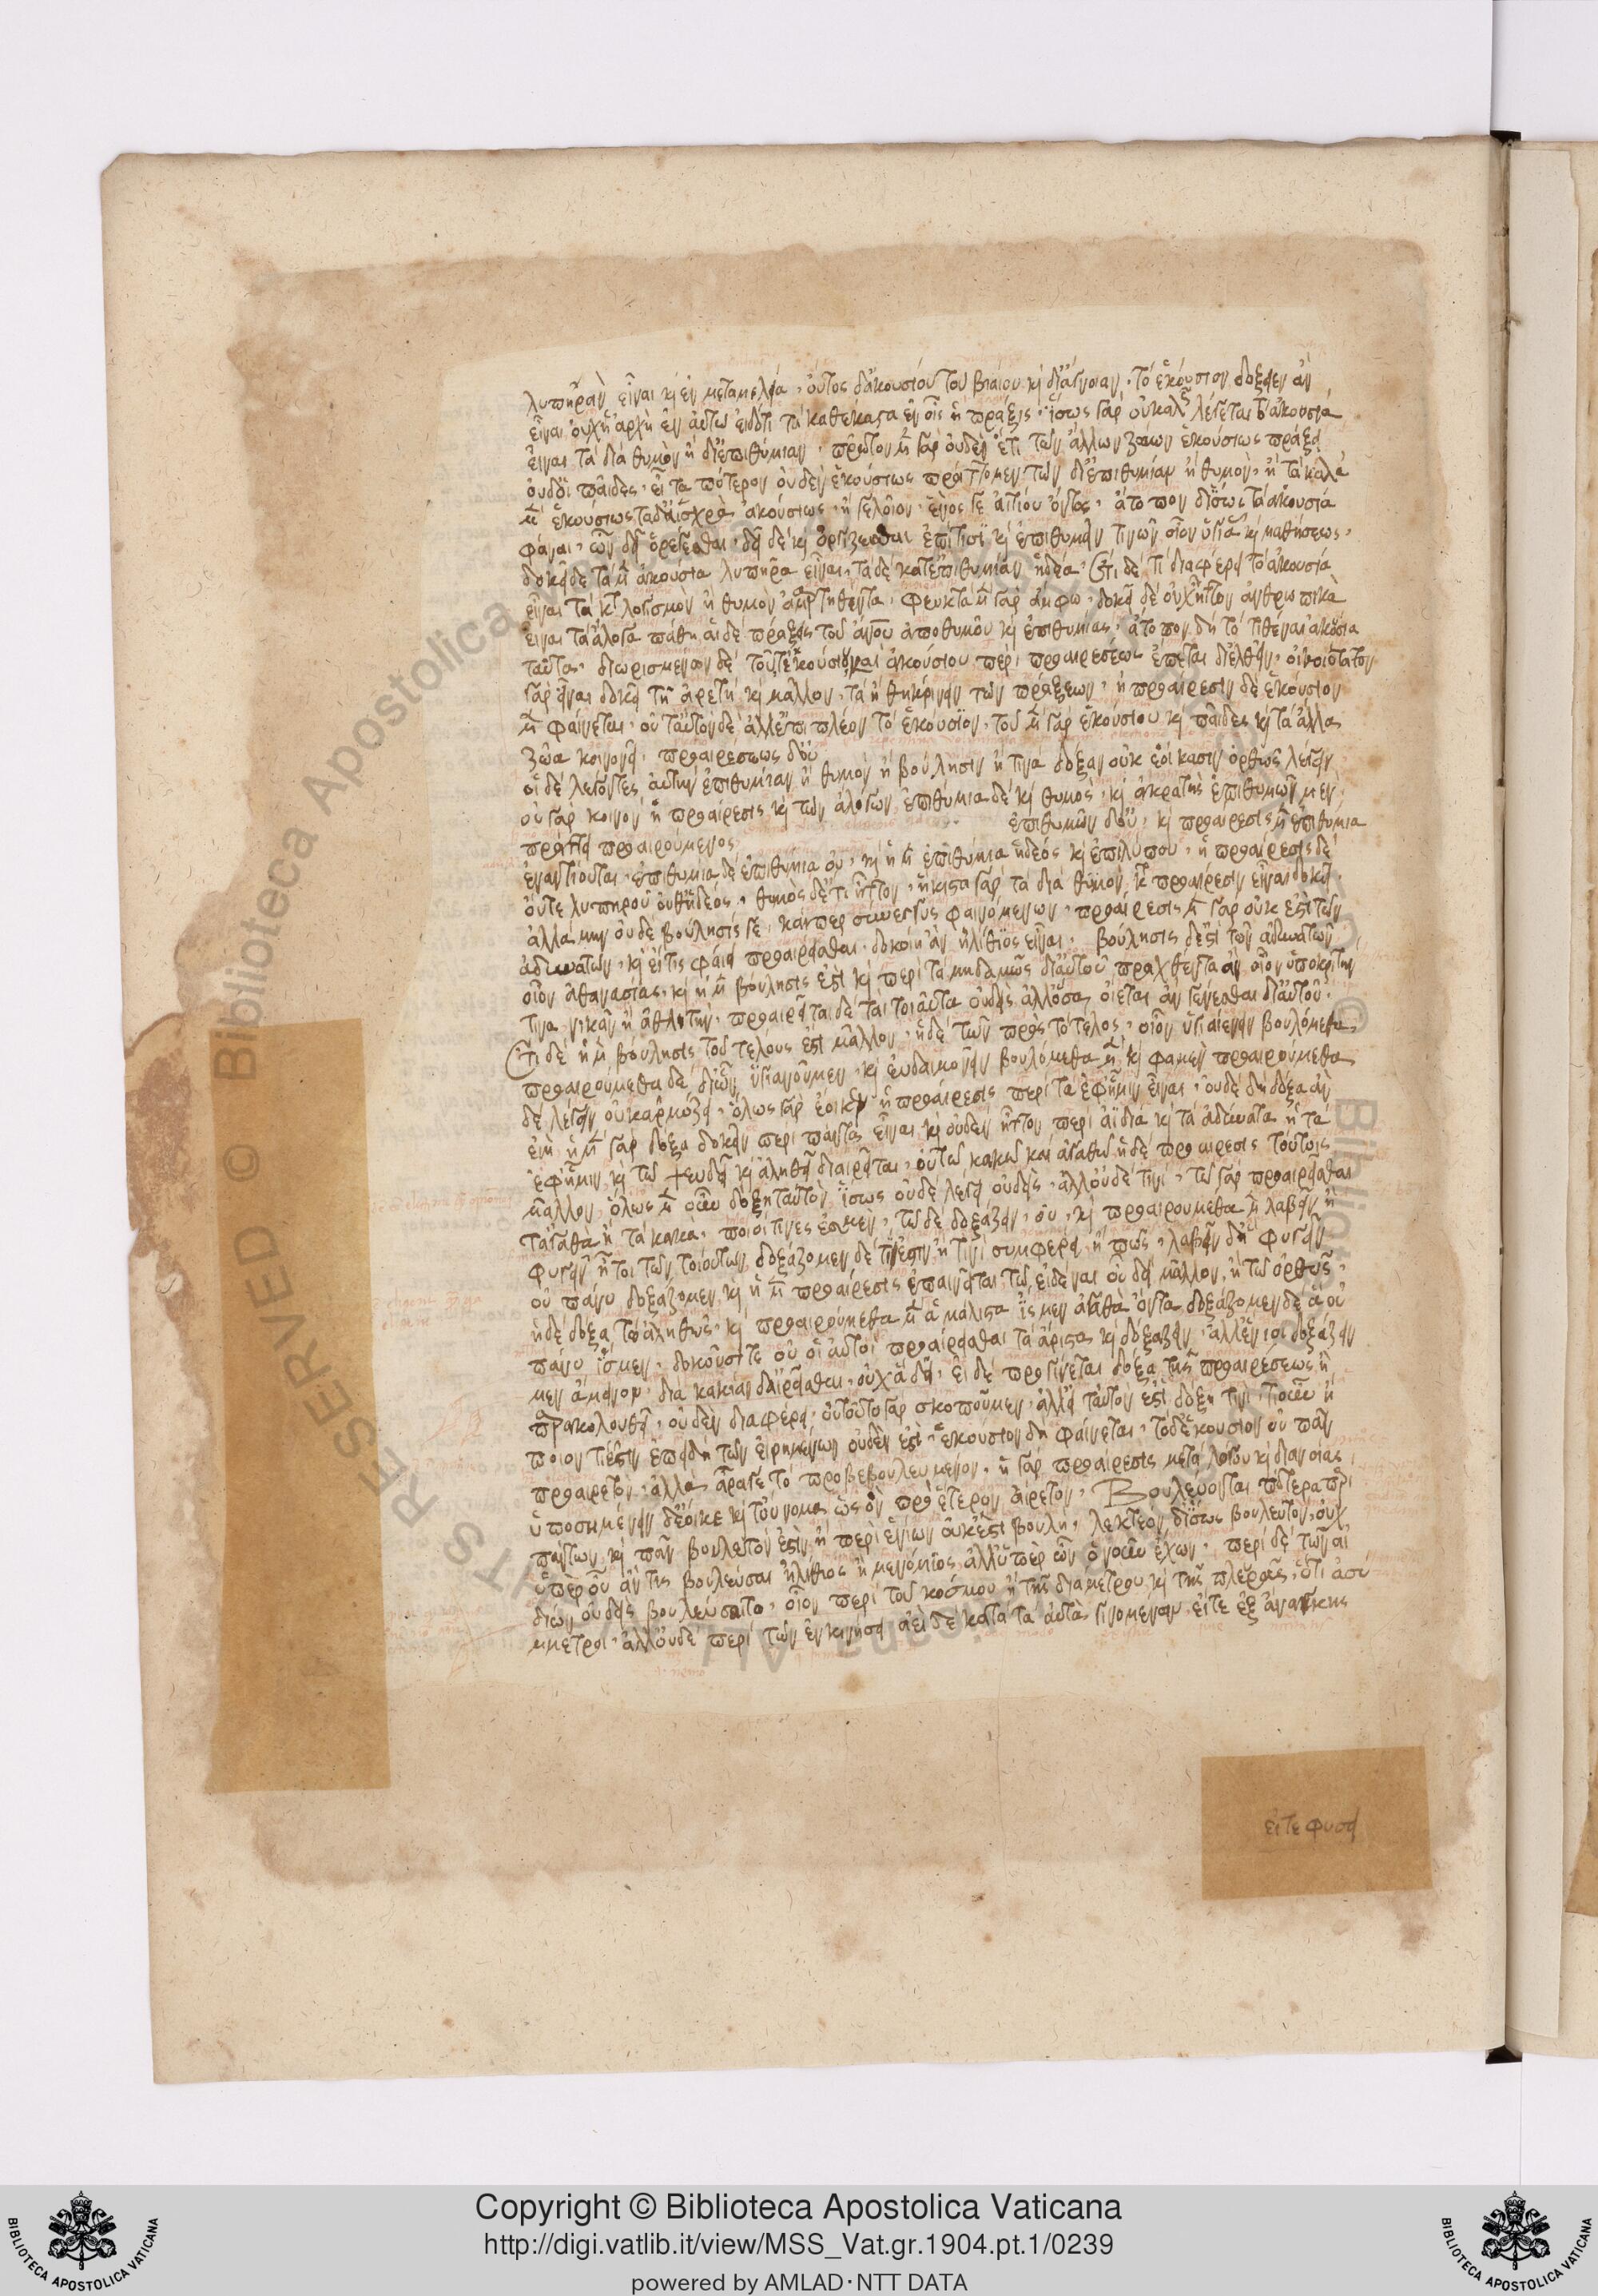 λυπηρὰν εἶναι κὶ ἐν μεταμελεία· ὄντος δ' ἀκουσίου τοῦ βιαίου κὶ δι' ἄγνοιαν· τὸ ἑκούσιον δόξειεν ἂν
εἶναι οὗ ἡ ἀρχὴ ἐν αὐτῶ εἰδότι τὰ καθέκαστα ἐν οἷς ἡ πράξις· ἴσως γὰρ οὐ καλῶς λέγεται τὰ ἀκούσια
εἶναι τὰ διὰ θυμὸν ἢ δι' ἐπιθυμίαν· πρῶτον μὲν γὰρ οὐδὲν ἔτι τῶν ἄλλων ζώων ἑκουσίως πράξει
οὐδ' οἱ παῖδες· εἶτα πότερον οὐδὲν ἑκουσίως πράττομεν τῶν δι' ἐπιθυμίαν ἢ θυμὸν· ἢ τὰ καλὰ
μὲν ἑκουσίως τὰ δ' αἰσχρὰ ἀκουσίως· ἢ γελοῖον· ἑνός γε αἰτίου ὄντος· ἄτοπον δ' ἴσως τὰ ἀκούσια
φάναι· ὧν δεῖ ὀρέγεσθαι· δεῖ δὲ κὶ ὀργίζεσθαι ἐπί τισι κὶ ἐπιθυμεῖν τινῶν οἷον ὑγιείας κὶ μαθήσεως·
δοκεῖ δὲ τὰ μὲν ἀκούσια λυπηρὰ εἶναι· τὰ δὲ κατ' ἐπιθυμίαν ἡδέα· Ἔτι δὲ τί διαφέρει τὸ ἀκούσια
εἶναι τὰ κατὰ λογισμὸν ἢ θυμὸν ἁμαρτηθέντα· φευκτὰ μὲν γὰρ ἄμφω· δοκεῖ δὲ οὐχ ἧττον ἀνθρωπικὰ
εἶναι τὰ ἄλογα πάθη αἱ δὲ πράξεις τοῦ ἀνου ἀπο θυμοῦ κὶ ἐπιθυμίας· ἄτοπον δὴ τὸ τιθέναι ἀκούσια
ταῦτα· διωρισμένων δὲ τοῦ τε ἑκουσίου καὶ ἀκουσίου περὶ προαιρέσεως ἕπεται διελθεῖν· οἰκειότατον
γὰρ εἶναι δοκεῖ τῆ ἀρετῆ κὶ μᾶλλον· τὰ ἤθη κρίνειν τῶν πράξεων· ἡ προαίρεσις δὲ ἑκούσιον
μὲν φαίνεται· οὐ ταὐτὸν δὲ ἀλλ' ἐπὶ πλέον τὸ ἑκούσιον· τοῦ μὲν γὰρ ἑκουσίου κὶ παῖδες κὶ τὰ ἄλλα
ζῶα κοινωνεῖ· προαιρέσεως δ' οὔ
οἱ δὲ λέγοντες αὐτὴν ἐπιθυμίαν ἢ θυμὸν ἢ βούλησιν ἢ τινὰ δόξαν οὐκ ἐοίκασιν ὀρθῶς λέγειν
οὐ γὰρ κοινὸν ἡ προαίρεσις κὶ τῶν ἀλόγων ἐπιθυμία δὲ κὶ θυμὸς· κὶ ἀκρατὴς ἐπιθυμῶν μὲν
ἐπιθυμῶν δ' οὔ· κὶ προαιρεσις μὲν ἐπιθυμία
πράττει προαιρούμενος
ἐναντιοῦται· ἐπιθυμία δὲ ἐπιθυμία οὐ· κὶ ἡ μὲν ἐπιθυμία ἡδέος κὶ ἐπιλύπου· ἡ προαίρεσις δὲ
οὔτε λυπηροῦ οὔθ' ἡδέος· θυμὸς δ' ἔτι ἧττον· ἥκιστα γὰρ τὰ διὰ θυμὸν κατὰ προαίρεσιν εἶναι δοκεῖ·
ἀλλὰ μὴν οὐδὲ βούλησίς γε· καίπερ σύνεγγυς φαινόμενον· προαίρεσις μὲν γὰρ οὐκ ἔστι τῶν
ἀδυνάτων· κὶ εἴ τις φαίη προαιρεῖσθαι· δοκοίη ἂν ἠλίθιος εἶναι· βούλησις δ' ἐστὶ τῶν ἀδυνάτων
οἷον ἀθανασίας· κὶ ἡ μὲν βούλησίς ἐστι κὶ περὶ τὰ μηδαμῶς δι' αὑτοῦ πραχθέντα ἂν οἷον ὑποκριτὴν
τινα νικᾶν ἢ ἀθλητὴν· προαιρεῖται δὲ τὰ τοιαῦτα οὐδεὶς ἀλλ' ὅσα οἴεται ἂν γενέσθαι δι' αὑτοῦ·
Ἔτι δὲ ἡ μὲν βούλησις τοῦ τέλους ἐστὶ μᾶλλον· ἡ δὲ τῶν πρὸς τὸ τέλος· οἷον ὑγιαίνειν βουλόμεθα·
προαιρούμεθα δὲ δι' ὧν ὑγιανοῦμεν· κὶ εὐδαιμονεῖν βουλόμεθα μὲν κὶ φαμεν προαιρούμεθα
δὲ λέγειν οὐχ ἁρμόζει· ὅλως γὰρ ἔοικεν ἡ προαίρεσις περὶ τὰ ἐφ' ἡμῖν εἶναι· οὐδὲ δὴ δόξα ἂν
εἴη· ἡ μὲν γὰρ δόξα δοκεῖ περὶ πάντα εἶναι κὶ οὐδὲν ἧττον περὶ ἀΐδια κὶ τὰ ἀδύνατα ἢ τὰ
ἐφ' ἡμῖν κὶ τῶ ψευδεῖ κὶ ἀληθεῖ διαιρεῖται· οὐ τῶ κακῶ καὶ ἀγαθῶ ἡ δὲ προαίρεσις τούτοις
μᾶλλον· ὅλως μὲν οὖν δόξη ταὐτὸν ἴσως οὐδὲ λέγει οὐδεὶς· ἀλλ' οὐδέ τινι· τῶ γὰρ προαιρεῖσθαι
τἀγαθὰ ἢ τὰ κακὰ· ποιοί τινες ἐσμὲν· τῶ δὲ δοξάζειν· οὐ· κὶ προαιρούμεθα μὲν λαβεῖν ἢ
φυγεῖν ἤ τι τῶν τοιούτων δοξάζομεν δὲ τί ἐστιν ἢ τίνι συμφέρει ἢ πῶς· λαβεῖν δ' ἢ φυγεῖν
οὐ πάνυ δοξάζομεν κὶ ἡ μὲν προαίρεσις ἐπαινεῖται τῶ εἰδέναι οὗ δεῖ μᾶλλον ἢ τῶ ὀρθῶς·
ἡ δὲ δόξα τῶ ἀληθῶς· κὶ προαιρούμεθα μὲν ἃ μάλιστα ἴσμεν ἀγαθὰ ὄντα δοξάζομεν δὲ ἃ οὐ
πάνυ ἴσμεν· δοκοῦσί τε οὐ οἱ αὐτοὶ προαιρεῖσθαι τὰ ἄριστα κὶ δοξάζειν· ἀλλ' ἔνιοι δοξάζειν
μὲν ἄμεινον· διὰ κακίαν δ' αἱρεῖσθαι οὐχ ἃ δεῖ· εἰ δὲ προγίνεται δόξα τῆς προαιρέσεως ἢ
παρακολουθεῖ· οὐδὲν διαφέρει· οὐ τοῦτο γὰρ σκοποῦμεν· ἀλλ' εἰ ταὐτόν ἐστι δόξη τινὶ· τί οὖν ἢ
ποῖόν τι ἐστὶν ἐπειδὴ τῶν εἰρημένων οὐδὲν ἐστὶ· ἑκούσιον δὴ φαίνεται· τὸ δ' ἑκούσιον οὐ πᾶν
προαιρετὸν· ἀλλὰ ἆρά γε τὸ προβεβουλευμένον· ἡ γὰρ προαίρεσις μετὰ λόγου κὶ διανοίας
ὑποσημαίνειν δ' ἔοικε κὶ τοὔνομα ὡς ὂν πρὸ ἑτέρων αἱρετὸν· Βουλεύονται πότερα περὶ
πάντων κὶ πᾶν βουλευτόν ἐστιν ἢ περὶ ἐνίων οὐκ ἔστι βουλὴ· λεκτέον δ' ἴσως βουλευτὸν· οὐχ
ὑπὲρ οὗ ἄν τις βουλεύσαι ἠλίθιος ἢ μαινόμενος ἀλλ' ὑπὲρ ὧν ὁ νοῦν ἔχων· περὶ δὲ τῶν ἀϊ
δίων οὐδεὶς βουλεύσαιτο· οἷον περὶ τοῦ κόσμου ἢ τῆς διαμέτρου κὶ τῆς πλευρᾶς· ὅτι ἀσύ
μμετροι· ἀλλ' οὐδὲ περὶ τῶν ἐν κινήσει ἀεὶ δὲ κατὰ τὰ αὐτὰ γινομένων εἴτε ἐξ ἀνάγκης
εἴτε φύσει
Copyright © Biblioteca Apostolica Vaticana
http://digi.vatlib.it/view/MSS_Vat.gr.1904.pt.1/0239
powered by AMLAD·NTT DATA
BIBLIOTECA APOSTOLICA VATICANA
BIBLIOTECA APOSTOLICA VATICANA